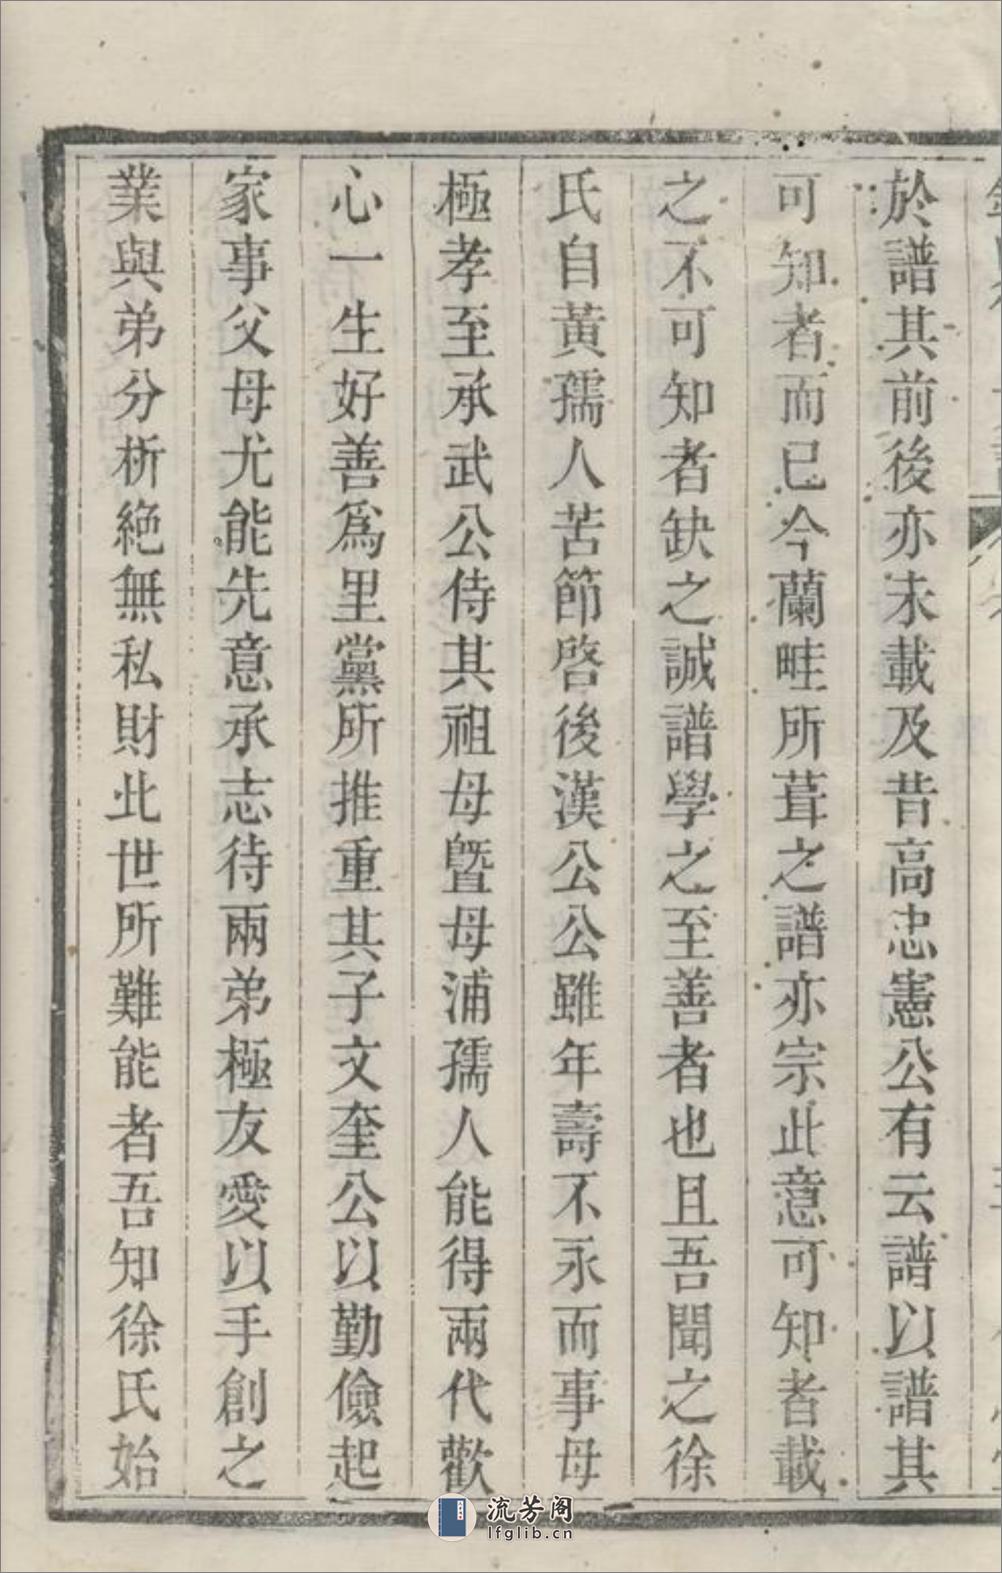 於譜其前後亦未載及昔高忠憲公有云譜以譜其
可知者而已今蘭畦所葺之譜亦宗此意可知者載
之不可知者缺之誠譜學之至善者也且吾聞之徐
氏自黃孺人苦節啓後漢公公雖年壽不永而事母
極孝至承武公侍其祖母暨母浦孺人能得兩代歡
心一生好善爲里黨所推重其子文奎公以勤儉起
家事父母尤能先意承志待兩弟極友愛以手創之
業與弟分析絕無私財此世所難能者吾知徐氏始
流芳阁
lfglib.cn